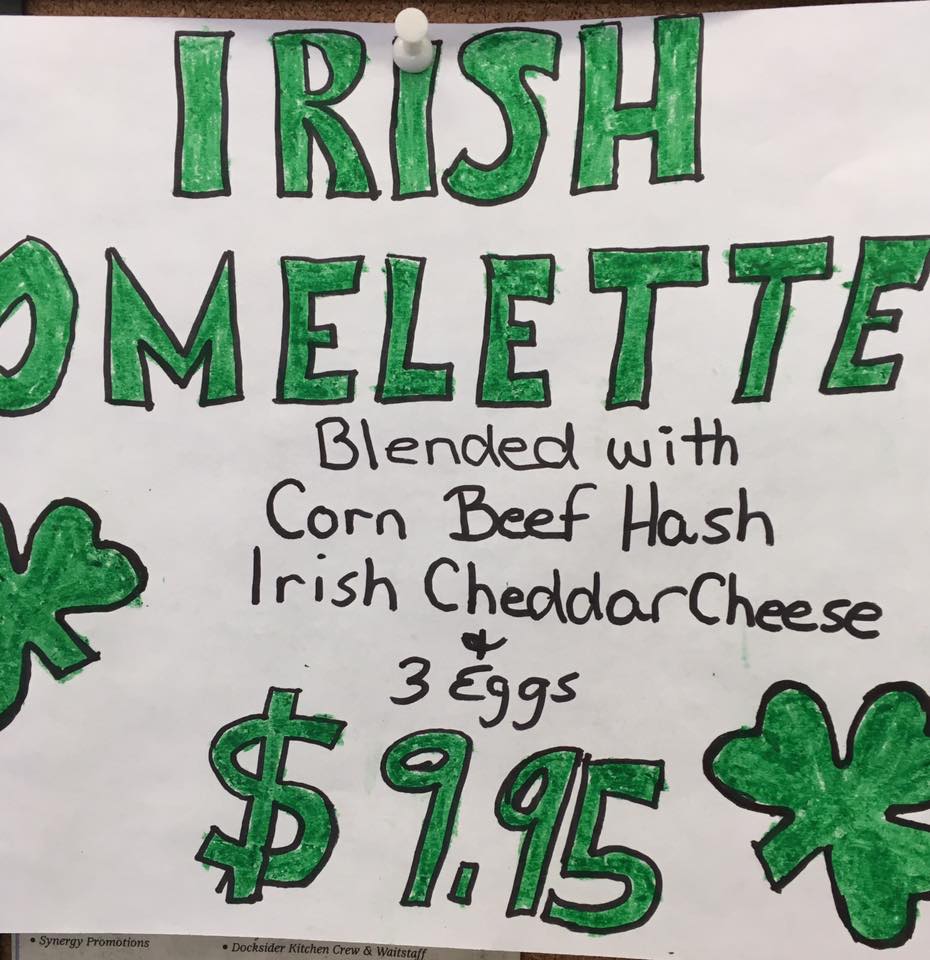 IRISH
OMELETTE
Blended with
Corn Beef Hash
Irish Cheddar Cheese
&
3 Eggs
$9.95
• Synergy Promotions
• Docksider Kitchen Crew & Waitstaff